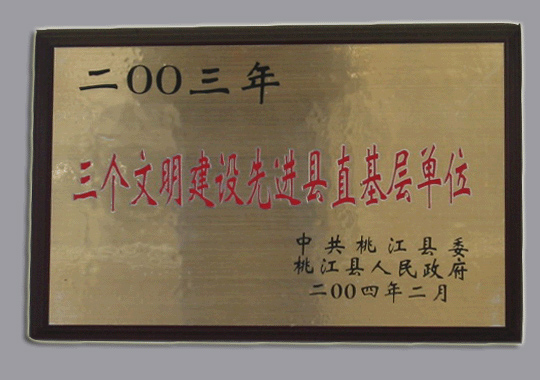 二OO三年
三个文明建设先进县直基层单位
中共桃江县委
桃江县人民政府
二OO四年二月